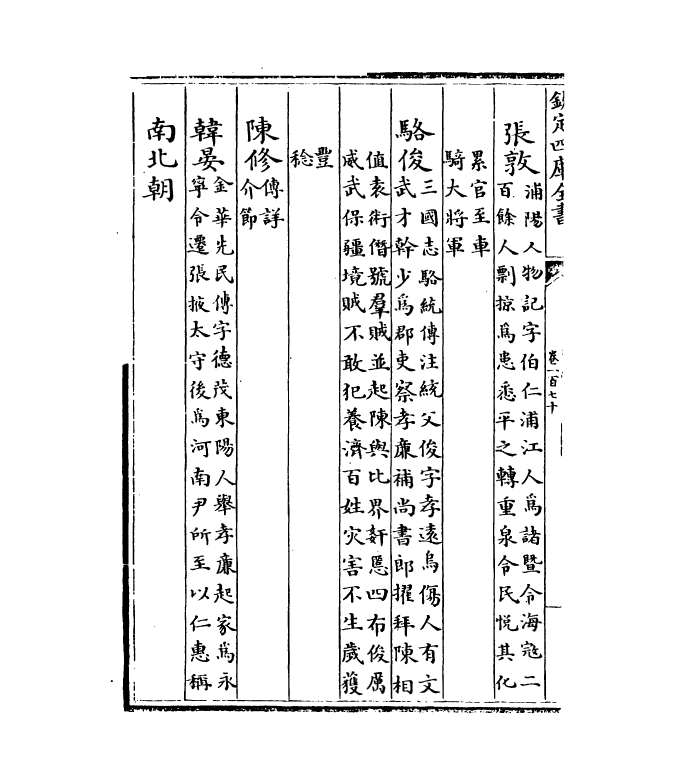 欽定四庫全書
卷一百七十
張敦
浦陽人物記字伯仁浦江人為諸暨令海冦二
百餘人剽掠為患悉平之轉重泉令民悦其化
累官至車
騎大將軍
駱俊
三國志駱統傳注統父俊字孝遠烏傷人有文
武才幹少為郡吏察孝廉補尚書郎擢拜陳相
值袁術僭號羣賊並起陳與比界奸慝四布俊厲
威武保疆境賊不敢犯養濟百姓灾害不生歲獲
豐
稔
陳修
傳詳
介節
韓晏
金華先民傳字德茂東陽人舉孝廉起家為永
寧令遷張掖太守後為河南尹所至以仁惠稱
南北朝